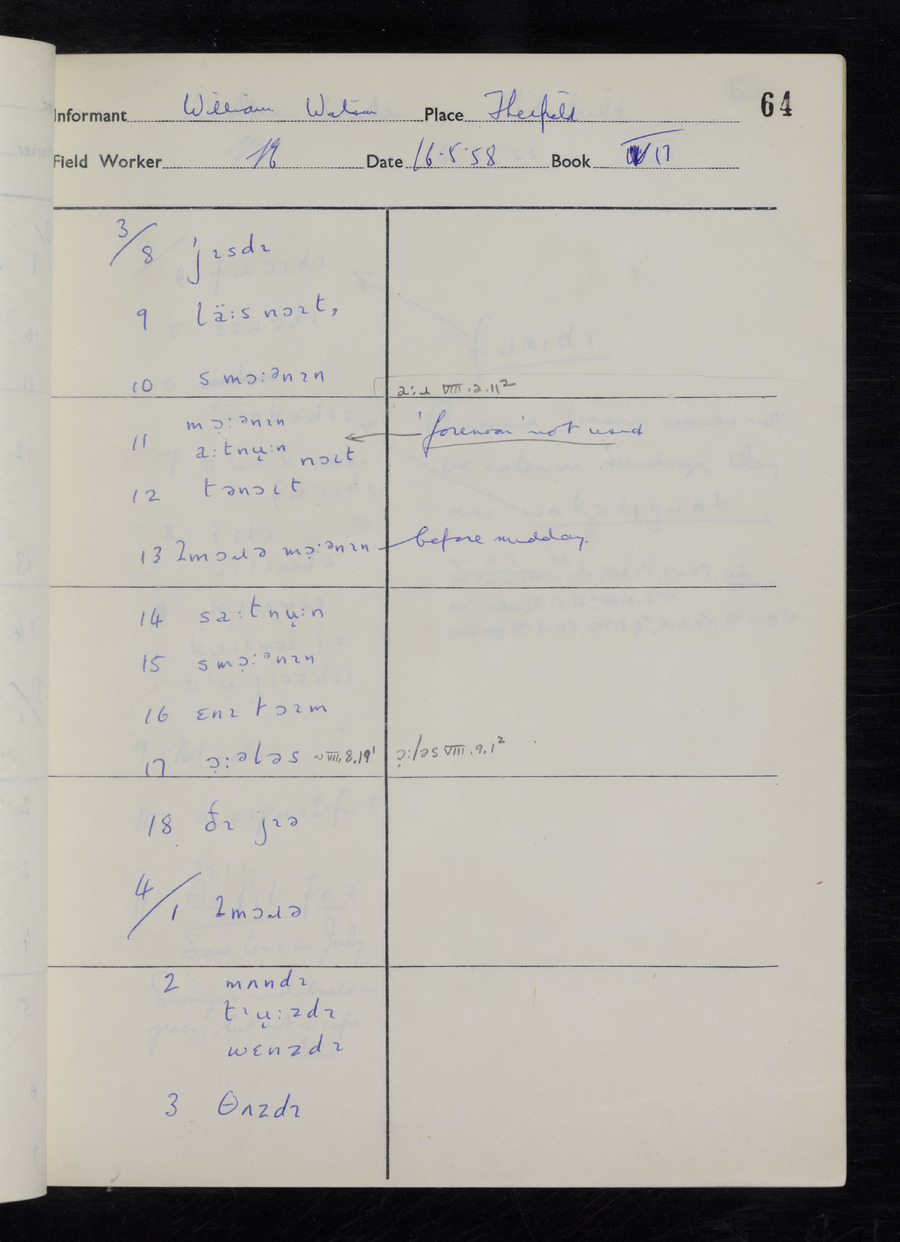 64
Informant William Watson Place Therfield
Field Worker Date 16.5.58 Book VII
3/8 ˈjɪsdɪ
9 lä:s nɔɪt,
10 s mɔ̣:ənɪn ə:ɹ VIII.2.11²
11 mɔ̣:ənɪn
a:tnụ:n nɔɪt
'forenoon' not used
12 tənɔɪt
13 ʔmɔɹə mɔ̣:ənɪn before midday.
14 sa:tnụ:n
15 smɔ̣:ənɪn
16 ɛnɪ tɔɪm
17 ɔ̣:ələs ~VIII.8.19¹ ɔ̣:ləs VIII.9.1²
18 ðɪ jɪə
4/1 ʔmɔɹə
2 mʌndɪ
tᶦụ:zdɪ
wɛnzdɪ
3 θʌzdɪ